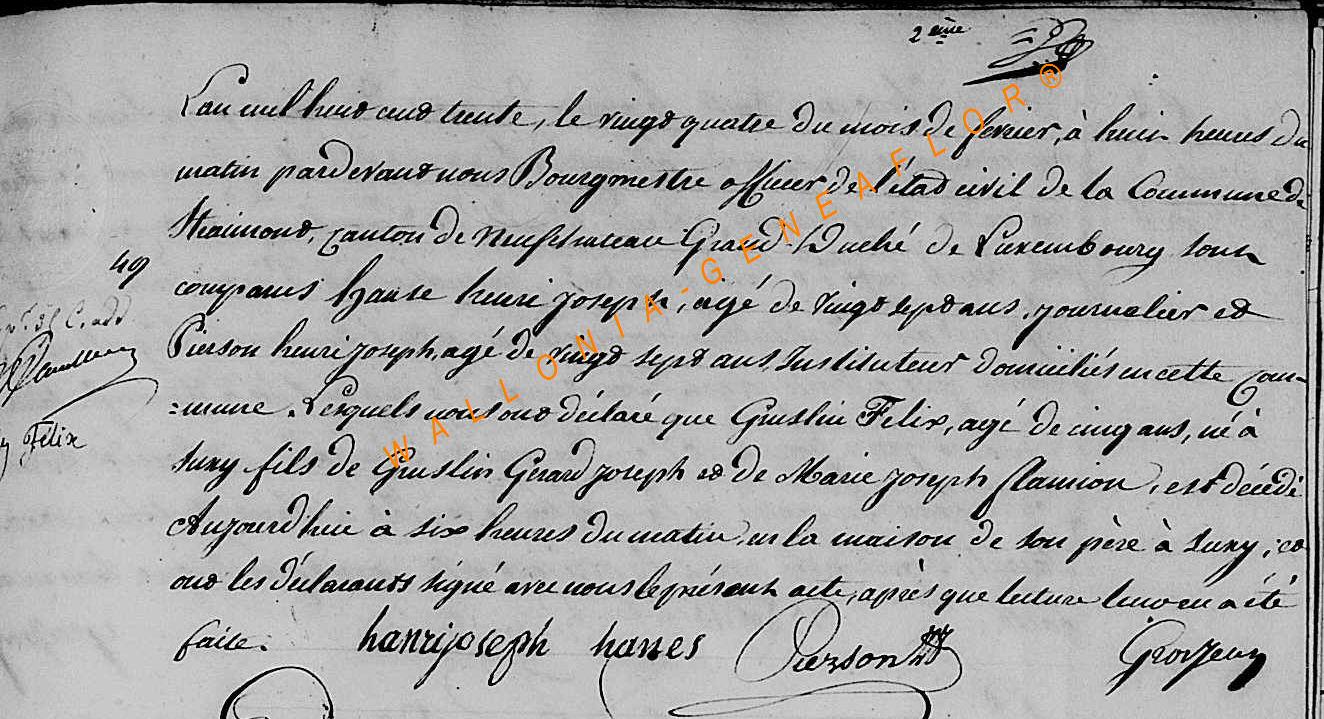 2ème
L'an mil huit cent trente, le vingt quatre du mois de fevrier, à huit heures du
matin pardevant nous Bourgmestre officier de l'état civil de la Commune de
Straimont, canton de Neufchateau Grand-Duché de Luxembourg sont
49
comparus Hanse henri joseph, agé de vingt sept ans, journalier et
Pierson henri joseph, agé de vingt sept ans, Instituteur domiciliés en cette com=
=mune. Lesquels nous ont déclaré que Guslin Felix, agé de cinq ans, né à
Félix
Suxy fils de Guslin Gerard joseph et de Marie joseph flamion, est décédé
Aujourd'hui à six heures du matin, en la maison de son père à Suxy, et
ont les déclarants signé avec nous le présent acte, après que lecture leur en a été
faite. hanrijoseph hanses Pierson
WALLONIA-GENEAFLOR®